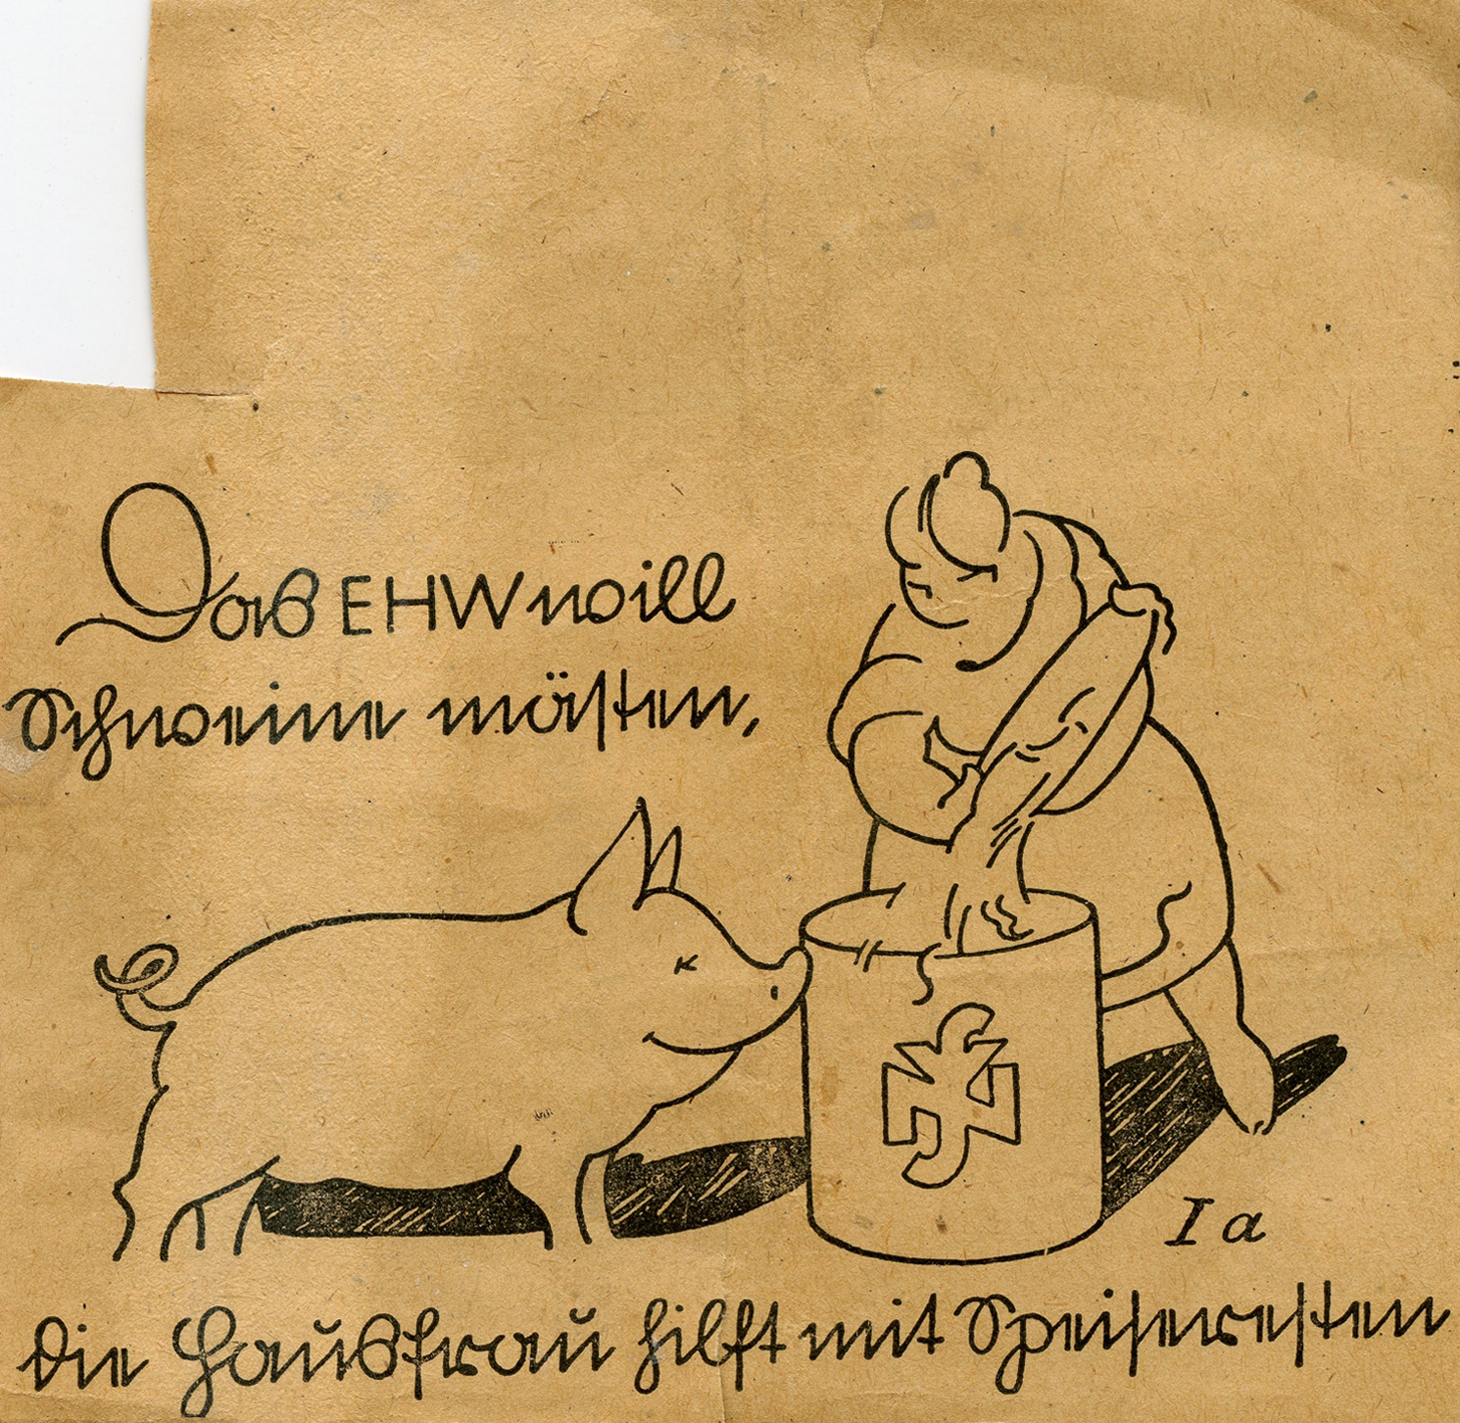 Das EHW will
Schweine mästen,
Ia
die Hausfrau hilft mit Speiseresten